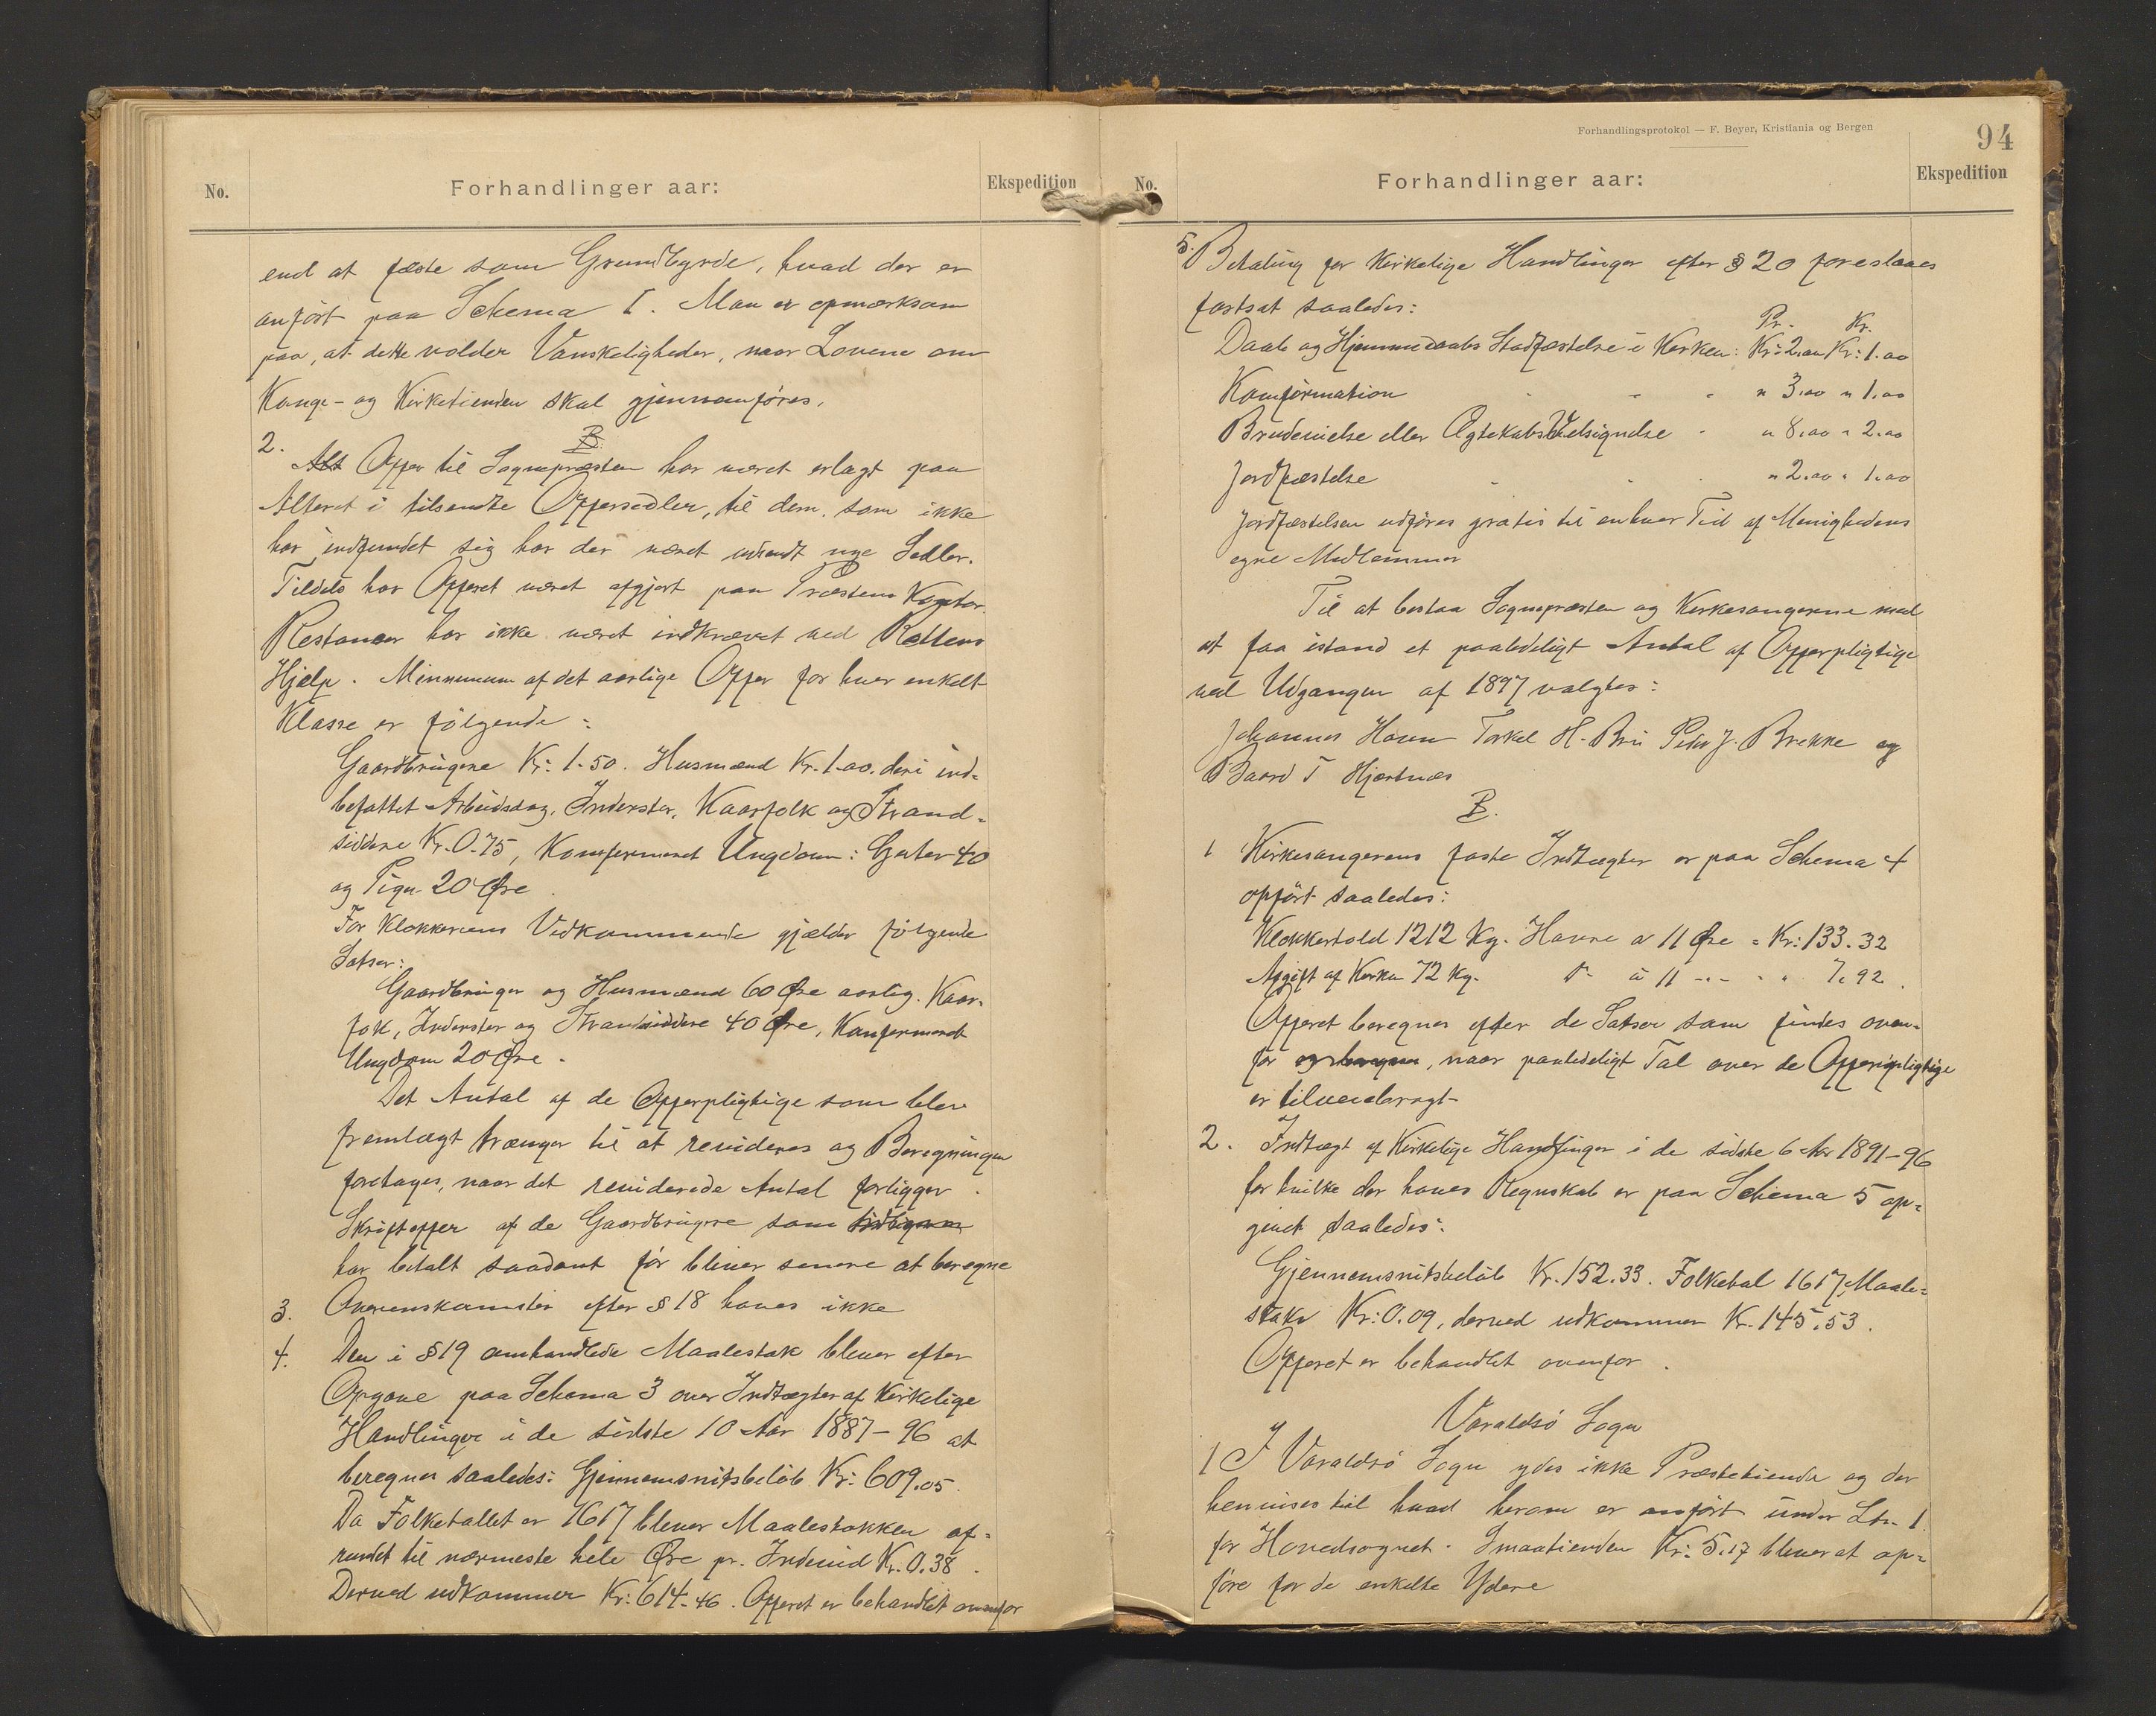 No.
Forhandlinger aar:
Ekspedition
end at fæste som Grundbyrde, hvad der er
anført paa Schema I. Man er opmærksom
paa, at dette volder Vanskeligheder, naar Lovene om
Konge- og Kirketienden skal gjennemføres.
B.
2.
Alt Offer til Sognepræsten har været erlagt paa
Alteret i tilsendte Offersedler, til dem, som ikke
har indfundet sig har der været udsendt nye Sedler.
Tildels har Offeret været afgjort paa Præstens Kontor.
Restancer har ikke været indkrævet ved Rettens
Hjælp. Minnumum af det aarlige Offer for hver enkelt
Klasse er følgende:
Gaardbrugere Kr: 1-50. Husmænd Kr. 1-00. deri ind-
befattet Arbeidsdag. Inderster, Kaarfolk og Strand-
siddere Kr. 0.75, Konfermeret Ungdom: Gutter 40
og Piger 20 Øre.
For Klokkerens Vedkommende gjælder følgende
Satser:
Gaardbruger og Husmænd 60 Øre aarlig. Kaar-
folk, Inderster og Strandsiddere 40 Øre, Konfermeret
Ungdom 20 Øre.
Det Antal af de Offerpligtige som blev
fremlagt trænger til at revideres og Beregningen
foretages, naar det reviderede Antal forligger.
Skriftoffer af de Gaardbrugere som
har betalt saadant før bliver senere at beregne
3.
Overenskomster efter § 18 haves ikke
4.
Den i § 19 omhandlede Maalestok bliver efter
Opgave paa Schema 3 over Indtægter af Kirkelige
Handlinger i de sidste 10 Aar 1887-96 at
beregne saaledes: Gjennemsnitsbeløb Kr: 609.05.
Da Folketallet er 1617 bliver Maalestokken af-
rundet til nærmeste hele Øre pr. Individ Kr. 0.38.
Derved udkommer Kr: 614-46. Offeret er behandlet ovenfor
Forhandlingsprotokol — F. Beyer, Kristiania og Bergen
94
No.
Forhandlinger aar:
Ekspedition
5. Betaling for Kirkelige Handlinger efter § 20 foreslaaes
fastsat saaledes:
Pr. Kr.
Daab og Hjemmedaabs Stadfæstelse i Kirken: Kr: 2.00 Kr: 1.00
Komfirmation " 3.00 " 1.00
Brudevielse eller Ægtekabs Velsignelse " 8.00 " 2.00
Jordfæstelse " 2.00 " 1.00
Jordfæstelsen udføres gratis til enhver Tid af Menighedens
egne Medlemmer
Til at bistaa Sognepræsten og Kirkesangerne med
at faa istand et paalideligt Antal af Offerpligtige
ved Udgangen af 1897 valgtes:
Johannes Haven Torkel H. Bru Peder J. Brekke og
Baard T Hjærtnæs
B.
1 Kirkesangerens faste Indtægter er paa Schema 4
opført saaledes:
Klokkertold 1212 Kg. Havre a 11 Øre = Kr: 133.32
Afgift af Kirken 72 Kg. " à 11 -"- - " 7.92.
Offeret beregnes efter de Satser som findes oven-
for , naar paalideligt Tal over de Offerpligtige
er tilveiebragt-
2. Indtægt af Kirkelige Handlinger i de sidste 6 Aar 1891-96
for hvilke der haves Regnskab er paa Schema 5 op-
givet saaledes:
Gjennemsnitsbeløb Kr. 152.33. Folketal 1617, Maale-
stok Kr: 0.09, derved udkommer Kr. 145.53.
Offeret er behandlet ovenfor.
Varaldsø Sogn
1 I Varaldsø Sogn ydes ikke Præstetiende og der
henvises til hvad herom er anført under Ltr. 1.
for Hovedsognet. Smaatienden Kr: 5.17 bliver at op-
føre for de enkelte Ydere